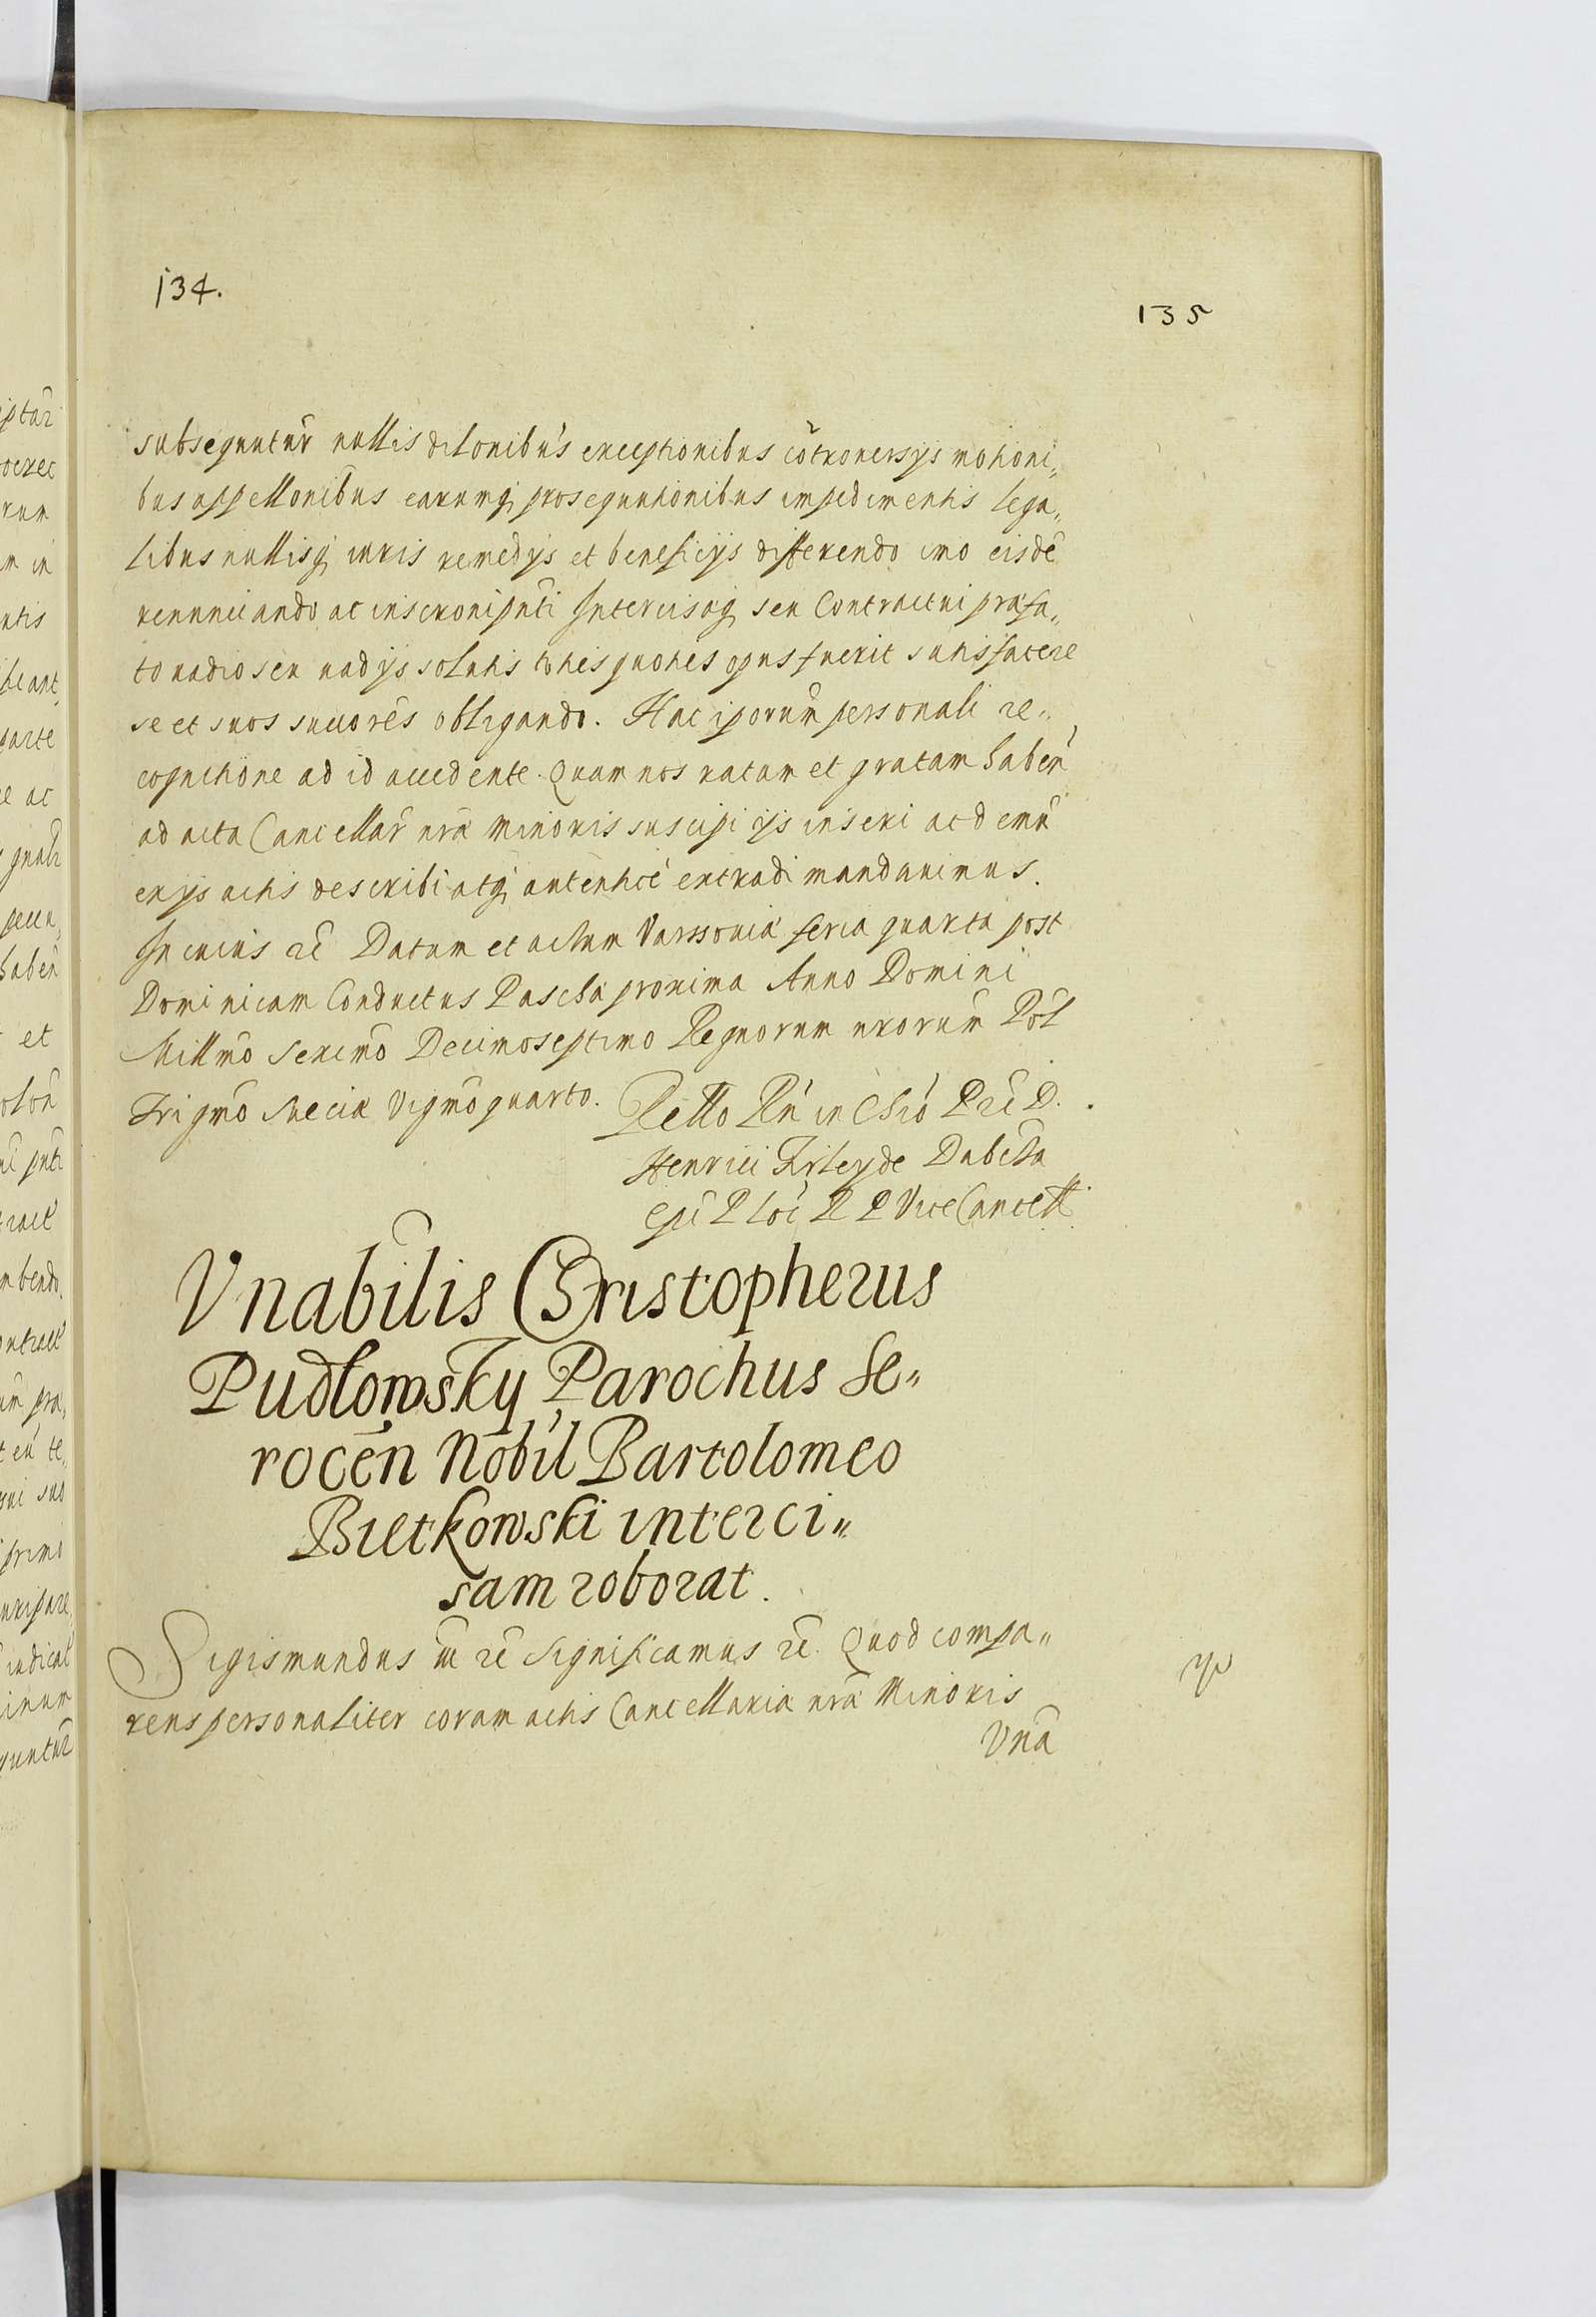 134.
135
subsequntur̃ nullis dilonibus exceptionibus cõtrouersijs motioni„
bus appellonibus earumq prosequutionibus impedimentis lega„
libus nullisq iuris remedijs et beneficijs differendo imo eisdẽ
renunciando ac inscroni pñti Intercisæq seu Contractui præfa„
to vadio seu vadijs solutis toties quoties opus fuerit satisfacere
se et suos succorẽs obligando. Hac iporum̃ personali re„
cognitione ad id accedente. Quam nos ratam et gratam haben̄
ad acta Cancellar̃ nrã Minoris suscipi ijs inseri ac demũ
ex ijs actis describi atq autenticẽ extradi mandauimus.
In cuius rẽ Datum et actum Varssouiæ feria quarta post
Dominicam Conductus Pascha proxima Anno Domini
Millmõ Sexcmõ Decimoseptimo Regnorum nrorum̃ Pol̃
Trigmõ Sueciæ vigmõ quarto. Rello Rñ in Chrõ Prĩ D.
Henrici Firley de Dabrĩca
Epĩ P loc̃ R P ViceCancell
Vnabilis Christopherus
Pudlowsky Parochus Se„
rocẽn Nobil Bartolomeo
Bietkowski interci„
sam roborat.
Sigismundus III rẽ Significamus rẽ. Quod compa„
rens personaliter coram actis Cancellariæ nrã Minoris
Vnã
iptar̃
rum
m in
ntis
parte
e ac
haben̄
et
pñti
bendo
ontract
um præ„
primo
indical
inum
quntur̃